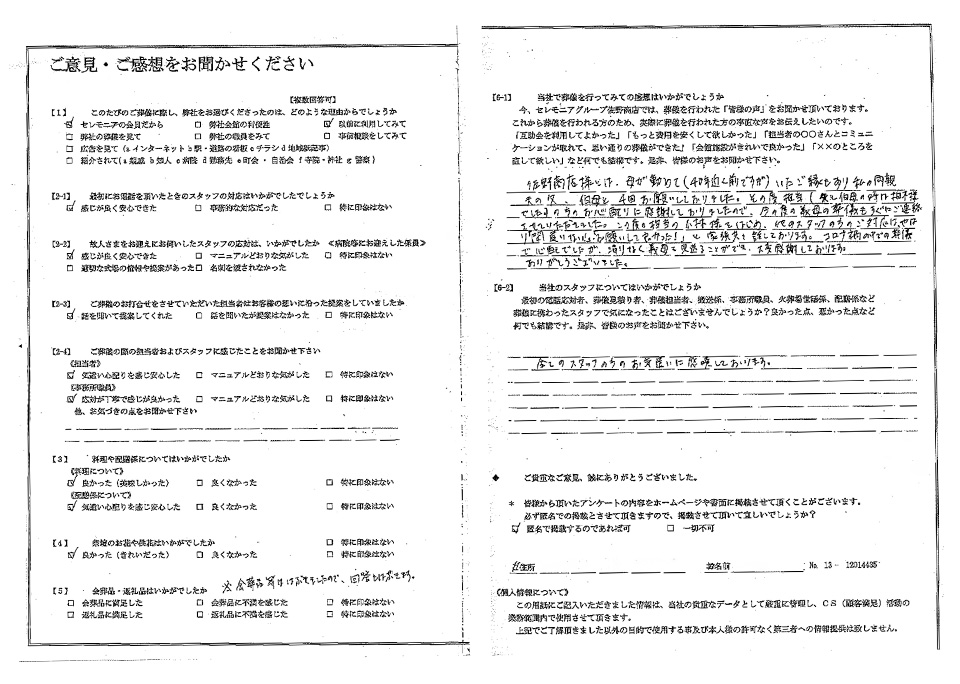 ご意見・ご感想をお聞かせください
【複数回答可】
【1】 このたびのご葬儀に際し、弊社をお選びくださったのは、どのような理由からでしょうか
☑ セレモニアの会員だから □ 弊社会館の利便性 ☑ 以前に利用してみて
□ 弊社の葬儀を見て □ 弊社の職員をみて □ 事前相談をしてみて
□ 広告を見て（a インターネット b 駅・道路の看板 c チラシ d 地域版記事）
□ 紹介されて（a 親戚 b 知人 c 病院 d 勤務先 e 町会・自治会 f 寺院・神社 g 警察）
【2-1】 最初にお電話を頂いたときのスタッフの対応はいかがでしたでしょうか
☑ 感じが良く安心できた □ 事務的な対応だった □ 特に印象はない
【2-2】 故人さまをお迎えにお伺いしたスタッフの応対は、いかがでしたか ≪病院等にお迎えした係員≫
☑ 感じが良く安心できた □ マニュアルどおりな気がした □ 特に印象はない
□ 適切な式場の情報や提案があった □ 名刺を渡されなかった
【2-3】 ご葬儀のお打合せをさせていただいた担当者はお客様の想いに沿った提案をしていましたか
☑ 話を聞いて提案してくれた □ 話を聞いたが提案はなかった □ 特に印象はない
【2-4】 ご葬儀の際の担当者およびスタッフに感じたことをお聞かせ下さい
≪担当者≫
☑ 気遣い心配りを感じ安心した □ マニュアルどおりな気がした □ 特に印象はない
≪事務所職員≫
☑ 応対が丁寧で感じが良かった □ マニュアルどおりな気がした □ 特に印象はない
他、お気づきの点をお聞かせ下さい
【3】 料理や配膳係についてはいかがでしたか
≪料理について≫
☑ 良かった（美味しかった） □ 良くなかった □ 特に印象はない
≪配膳係について≫
☑ 気遣い心配りを感じ安心した □ 良くなかった □ 特に印象はない
【4】 祭壇のお花や供花はいかがでしたか □ 特に印象はない
☑ 良かった（きれいだった） □ 良くなかった □ 特に印象はない
※会葬品等は
【5】 会葬品・返礼品はいかがでしたか
□ 会葬品に満足した □ 会葬品に不満を感じた □ 特に印象はない
□ 返礼品に満足した □ 返礼品に不満を感じた □ 特に印象はない
【6-1】 当社で葬儀を行ってみての感想はいかがでしょうか
今、セレモニアグループ佐野商店では、葬儀を行われた「皆様の声」をお聞かせ頂いております。
これから葬儀を行われる方のため、実際に葬儀を行われた方の率直な声をお伝えしたいのです。
「互助会を利用してよかった」「もっと費用を安くして欲しかった」「担当者の〇〇さんとコミュニ
ケーションが取れて、思い通りの葬儀ができた」「会館施設がきれいで良かった」「××のところを
直して欲しい」など何でも結構です。是非、皆様のお声をお聞かせ下さい。
佐野商店様とは、母が勤めて（40年近く前ですが）いたご縁もあり私の両親
夫の父、伯母と、4回お願いしておりました。その度担当
でした）の方のお心配りに感謝しておりましたので、今の度の義母の葬儀もすぐにご連絡
させていただきました。この度の担当の小林様をはじめ、他のスタッフの方のご対応
お願いして良かった！」と家族共々話しております。コロナ禍の中での葬儀
で心配でしたが、滞りなく義母を見送ることができ、大変感謝しております。
ありがとうございました。
【6-2】 当社のスタッフについてはいかがでしょうか
最初の電話応対者、葬儀見積り者、葬儀担当者、搬送係、事務所職員、火葬場登楼係、配膳係など
葬儀に携わったスタッフで気になったことはございませんでしょうか？良かった点、悪かった点など
何でも結構です。是非、皆様のお声をお聞かせ下さい。
全てのスタッフの方のお気遣いに感謝しております。
◆ ご貴重なご意見、誠にありがとうございました。
＊ 皆様から頂いたアンケートの内容をホームページや書面に掲載させて頂くことがございます。
必ず匿名での掲載とさせて頂きますので、掲載させて頂いて宜しいでしょうか？
☑ 匿名で掲載するのであれば可 □ 一切不可
ご住所 御名前 No. 13 - 12014435
≪個人情報について≫
この用紙にご記入いただきました情報は、当社の貴重なデータとして厳重に管理し、ＣＳ（顧客満足）活動の
業務範囲内で使用させて頂きます。
上記でご了解頂きました以外の目的で使用する事及び本人様の許可なく第三者への情報提供は致しません。